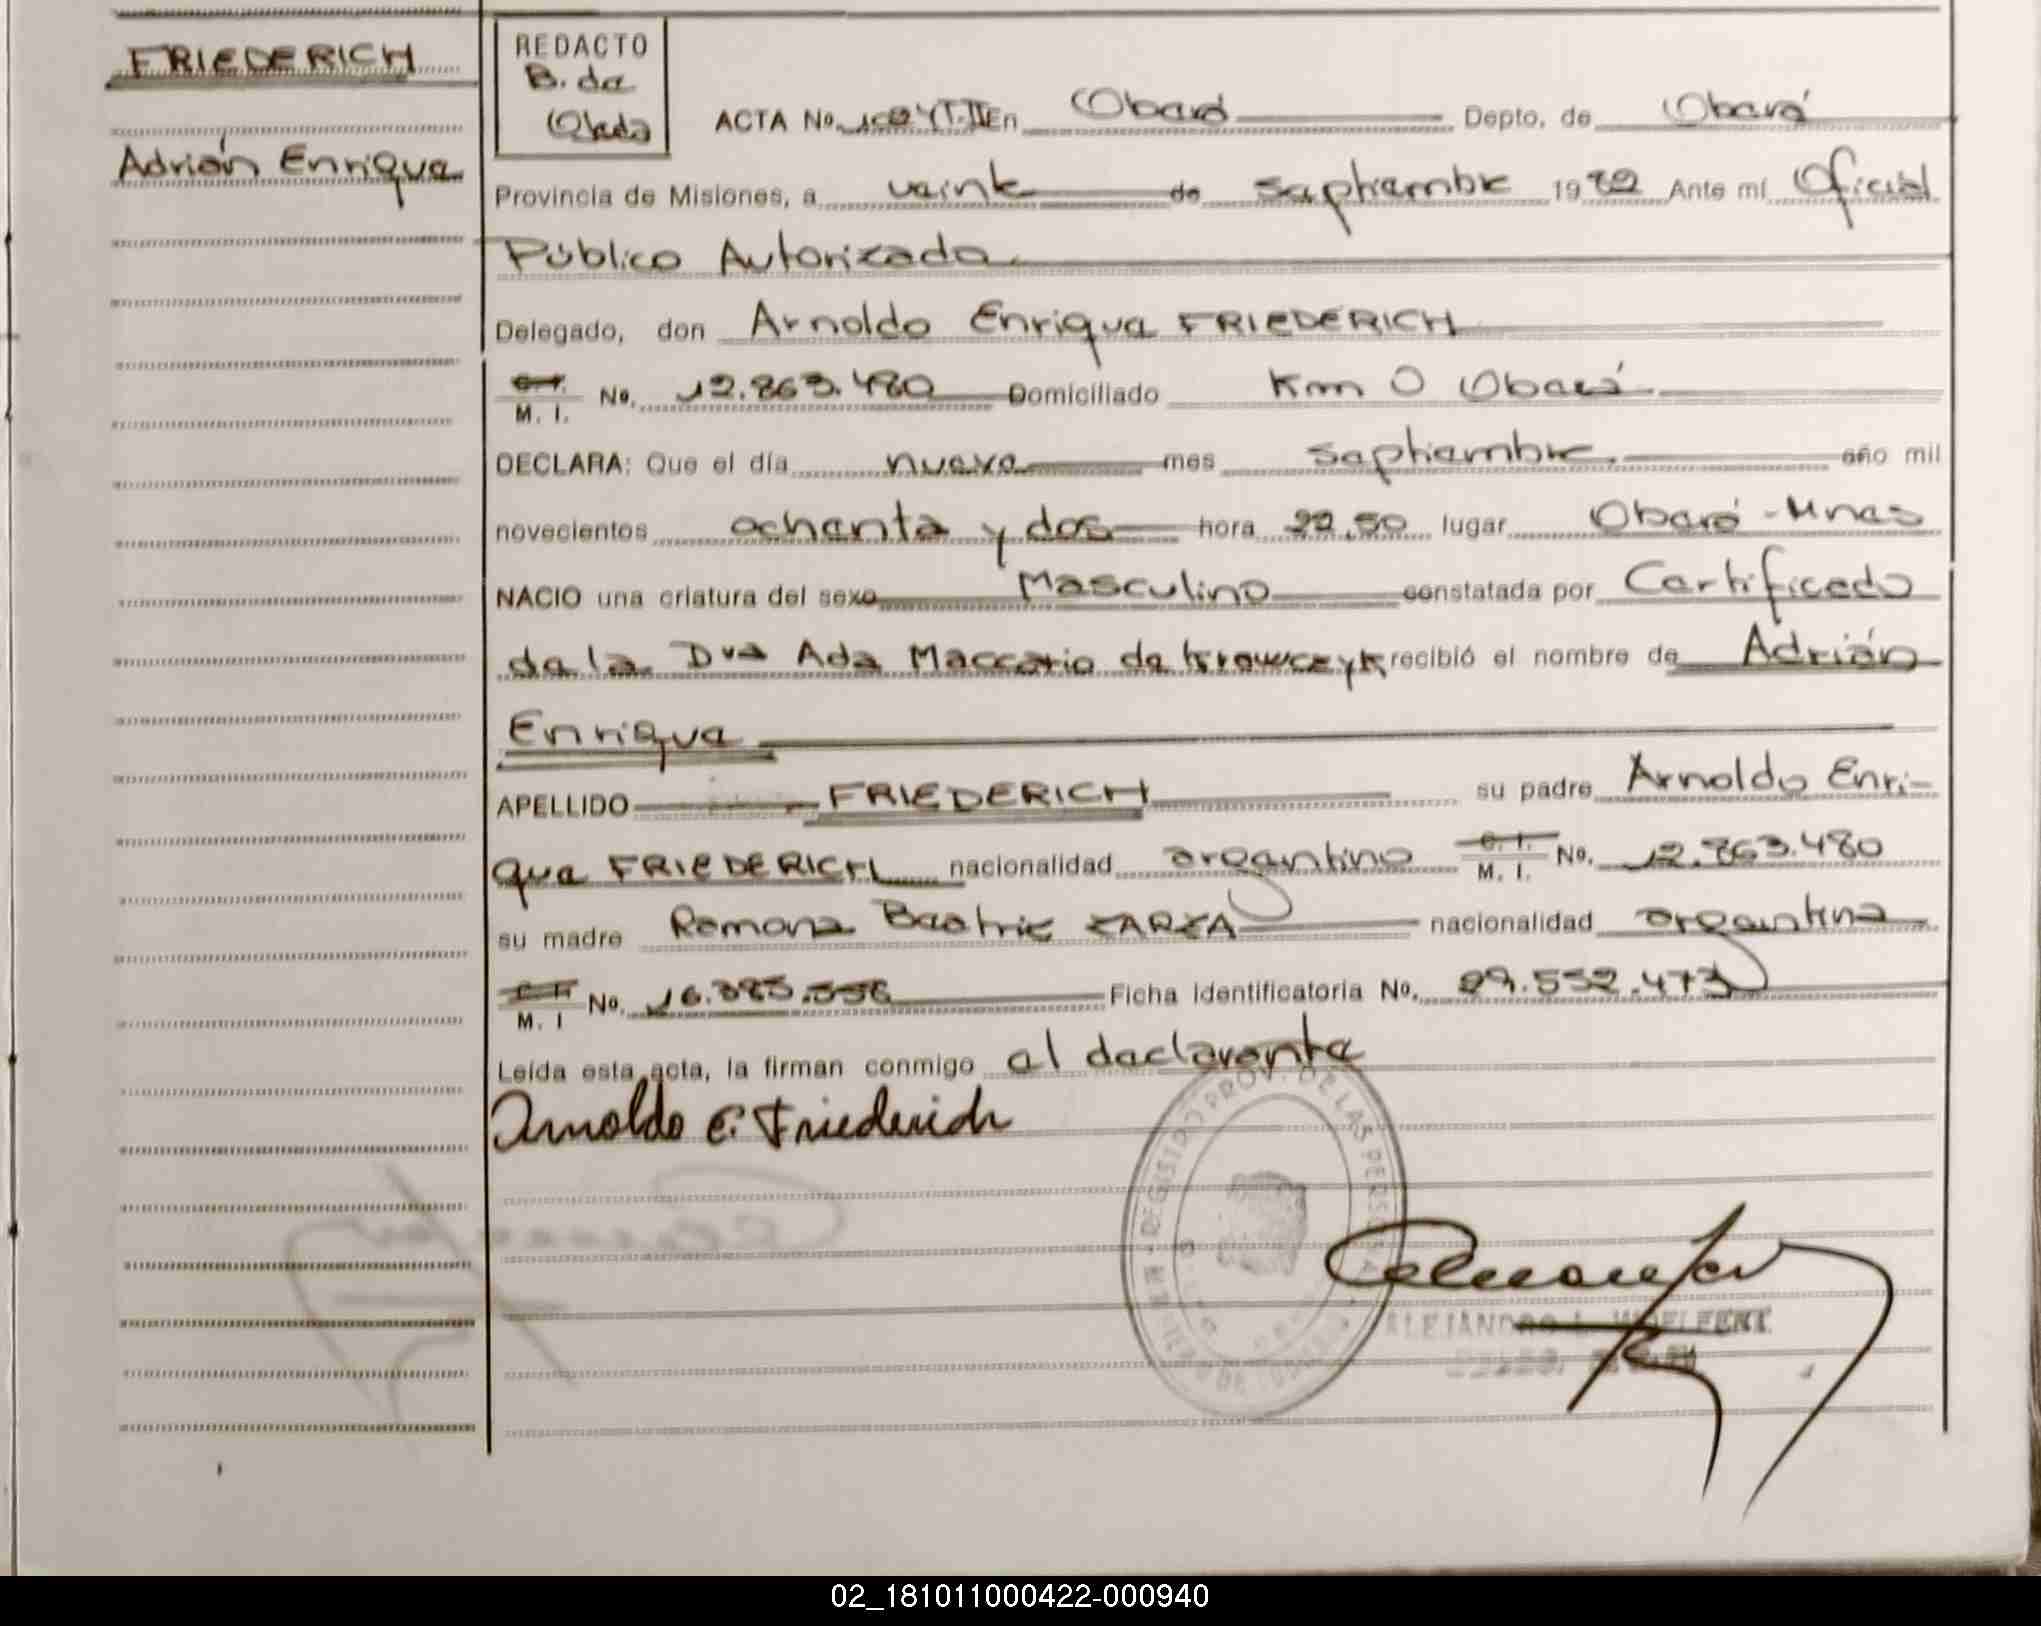 FRIEDERICH
Adrián Enrique
REDACTO
B. de
Olada
ACTA No. En Oberá Depto. de Oberá
Provincia de Misiones, a veinte de septiembre 1982 Ante mí Oficial
Público Autorizado
Delegado, don Arnoldo Enrique FRIEDERICH
C. I. M. I. No. 12.863.480 Domiciliado Km 0 Oberá
DECLARA: Que el día nueve mes septiembre año mil
novecientos ochenta y dos hora 22,50 lugar Oberá - Mnes
NACIO una criatura del sexo Masculino constatada por Certificado
de la Dra Ada Maccario de Krawczyk recibió el nombre de Adrián
Enrique
APELLIDO FRIEDERICH su padre Arnoldo Enri-
que FRIEDERICH nacionalidad argentino C. I. M. I. No. 12.863.480
su madre Ramona Beatriz ZARZA nacionalidad argentina
C. I. M. I No. 16.385.556 Ficha identificatoria No. 29.552.473
Leída esta acta, la firman conmigo el declarante
Arnoldo E. Friederich
REGISTRO PROV. DE LAS PERSONAS
ALEJANDRO L. WOELFERT
02_181011000422-000940